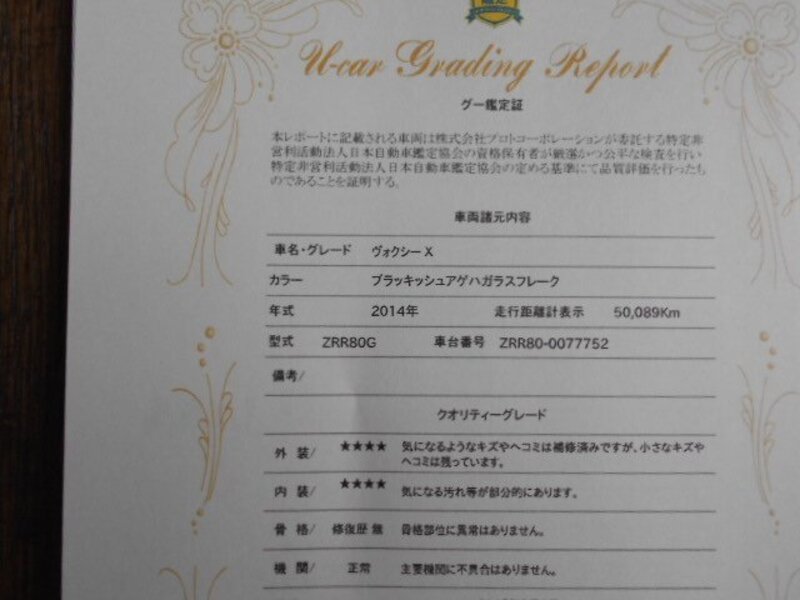 U-car Grading Report
グー鑑定証
本レポートに記載される車両は株式会社プロトコーポレーションが委託する特定非
営利活動法人日本自動車鑑定協会の資格保有者が厳選かつ公平な検査を行い
特定非営利活動法人日本自動車鑑定協会の定める基準にて品質評価を行ったも
のであることを証明する。
車両諸元内容
車名・グレード ヴォクシー X
カラー ブラッキッシュアゲハガラスフレーク
年式 2014年 走行距離計表示 50,089Km
型式 ZRR80G 車台番号 ZRR80-0077752
備考/
クオリティーグレード
外 装/ ★★★★ 気になるようなキズやヘコミは補修済みですが、小さなキズや
ヘコミは残っています。
内 装/ ★★★★ 気になる汚れ等が部分的にあります。
骨 格/ 修復歴 無 骨格部位に異常はありません。
機 関/ 正常 主要機関に不具合はありません。